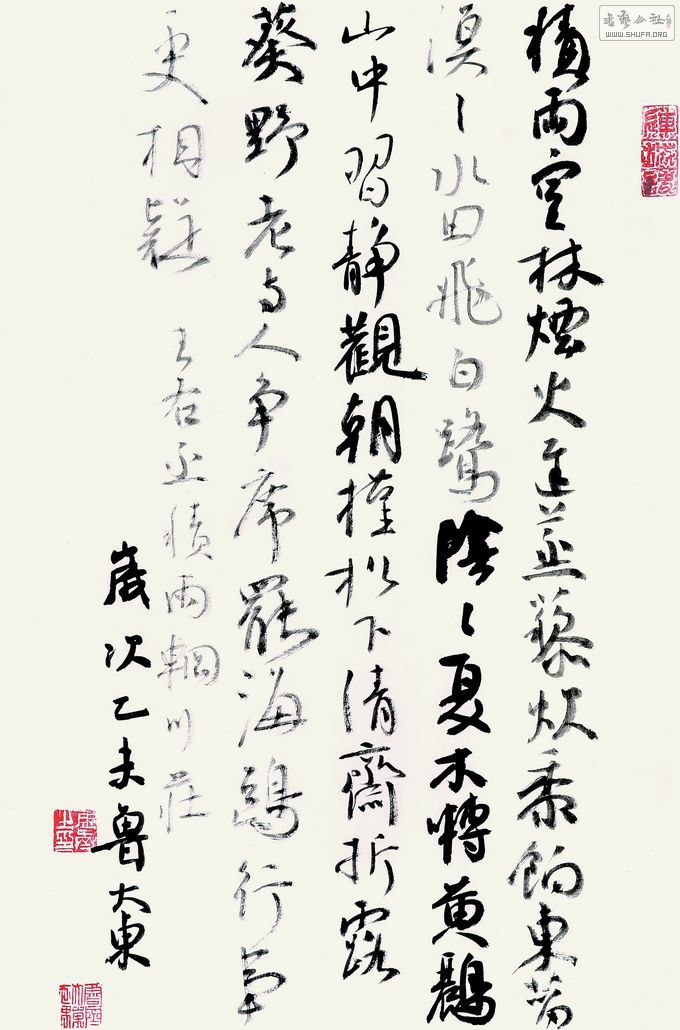 書藝公社
WWW.SHUFA.ORG
積雨空林煙火遲蒸藜炊黍餉東菑
漠〻水田飛白鷺陰〻夏木囀黃鸝
山中習靜觀朝槿松下清齋折露
葵野老与人争席罷海鷗何事
更相疑 王右丞積雨輞川莊
歲次乙未魯大東